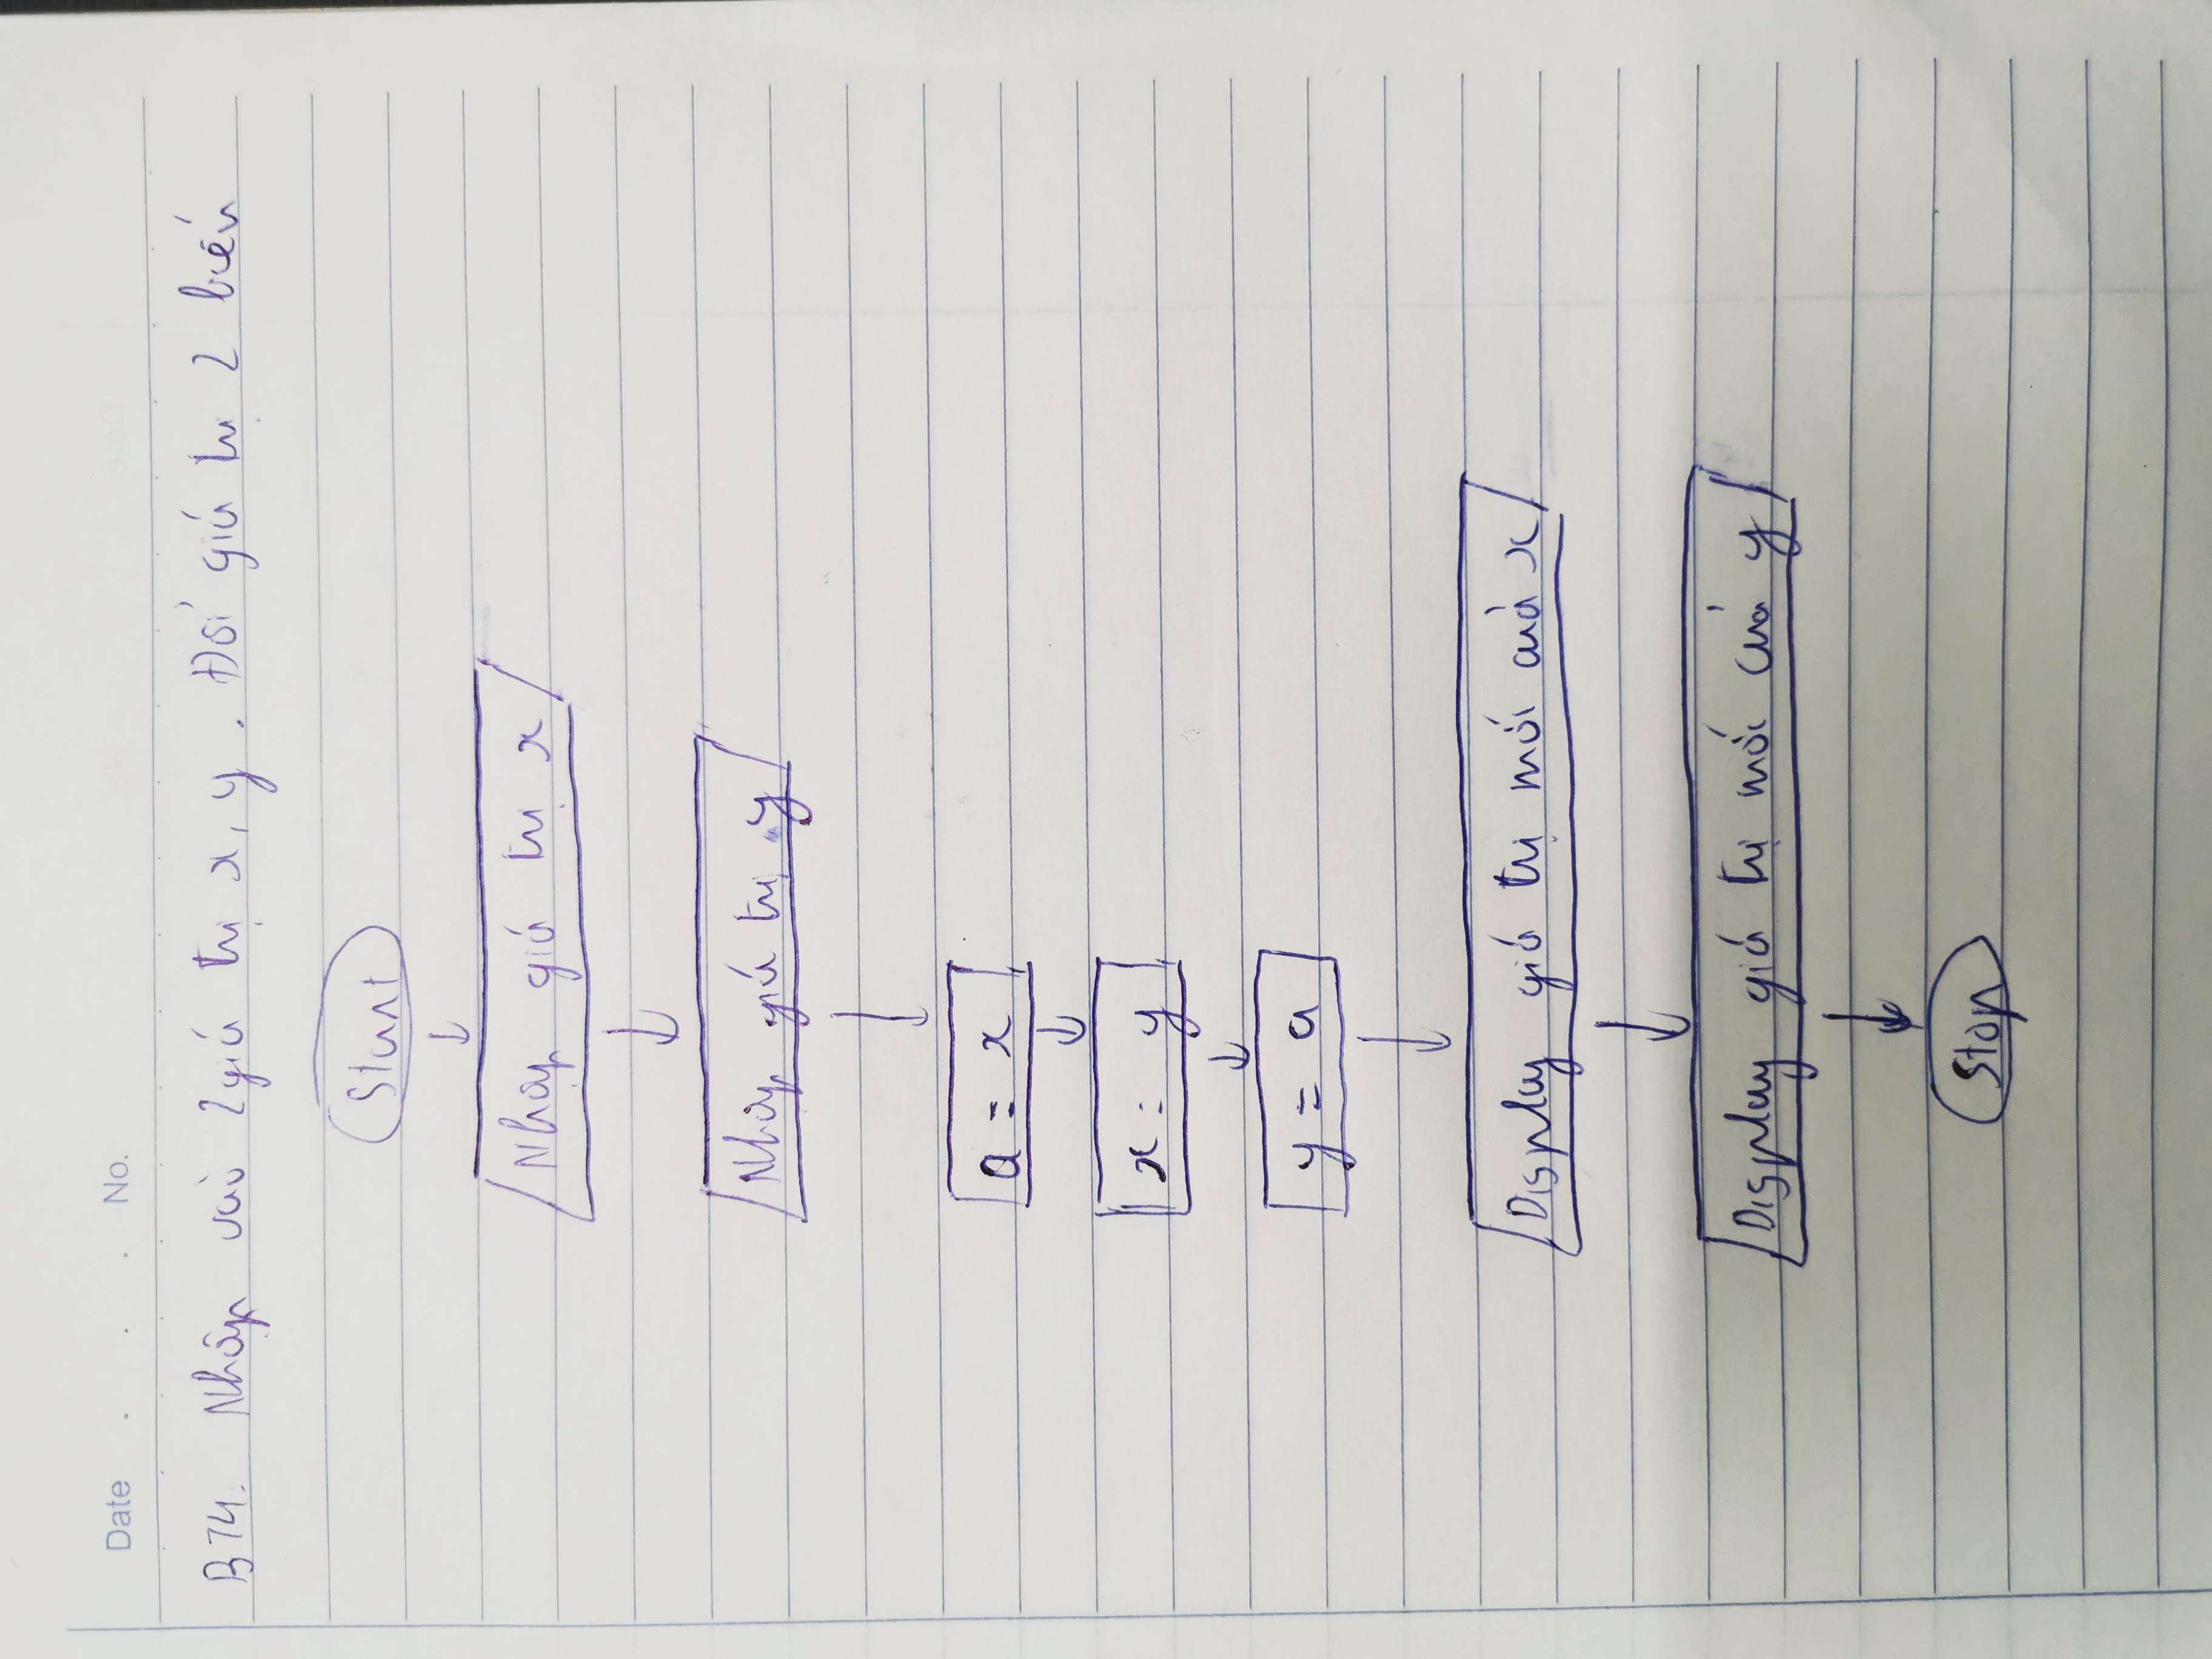 Date . . . No.
BT4. Nhập vào 2 giá trị x, y. Đổi giá trị 2 biến
Start
Nhập giá trị x
Nhập giá trị y
a = x
x = y
y = a
Display giá trị mới của x
Display giá trị mới của y
Stop